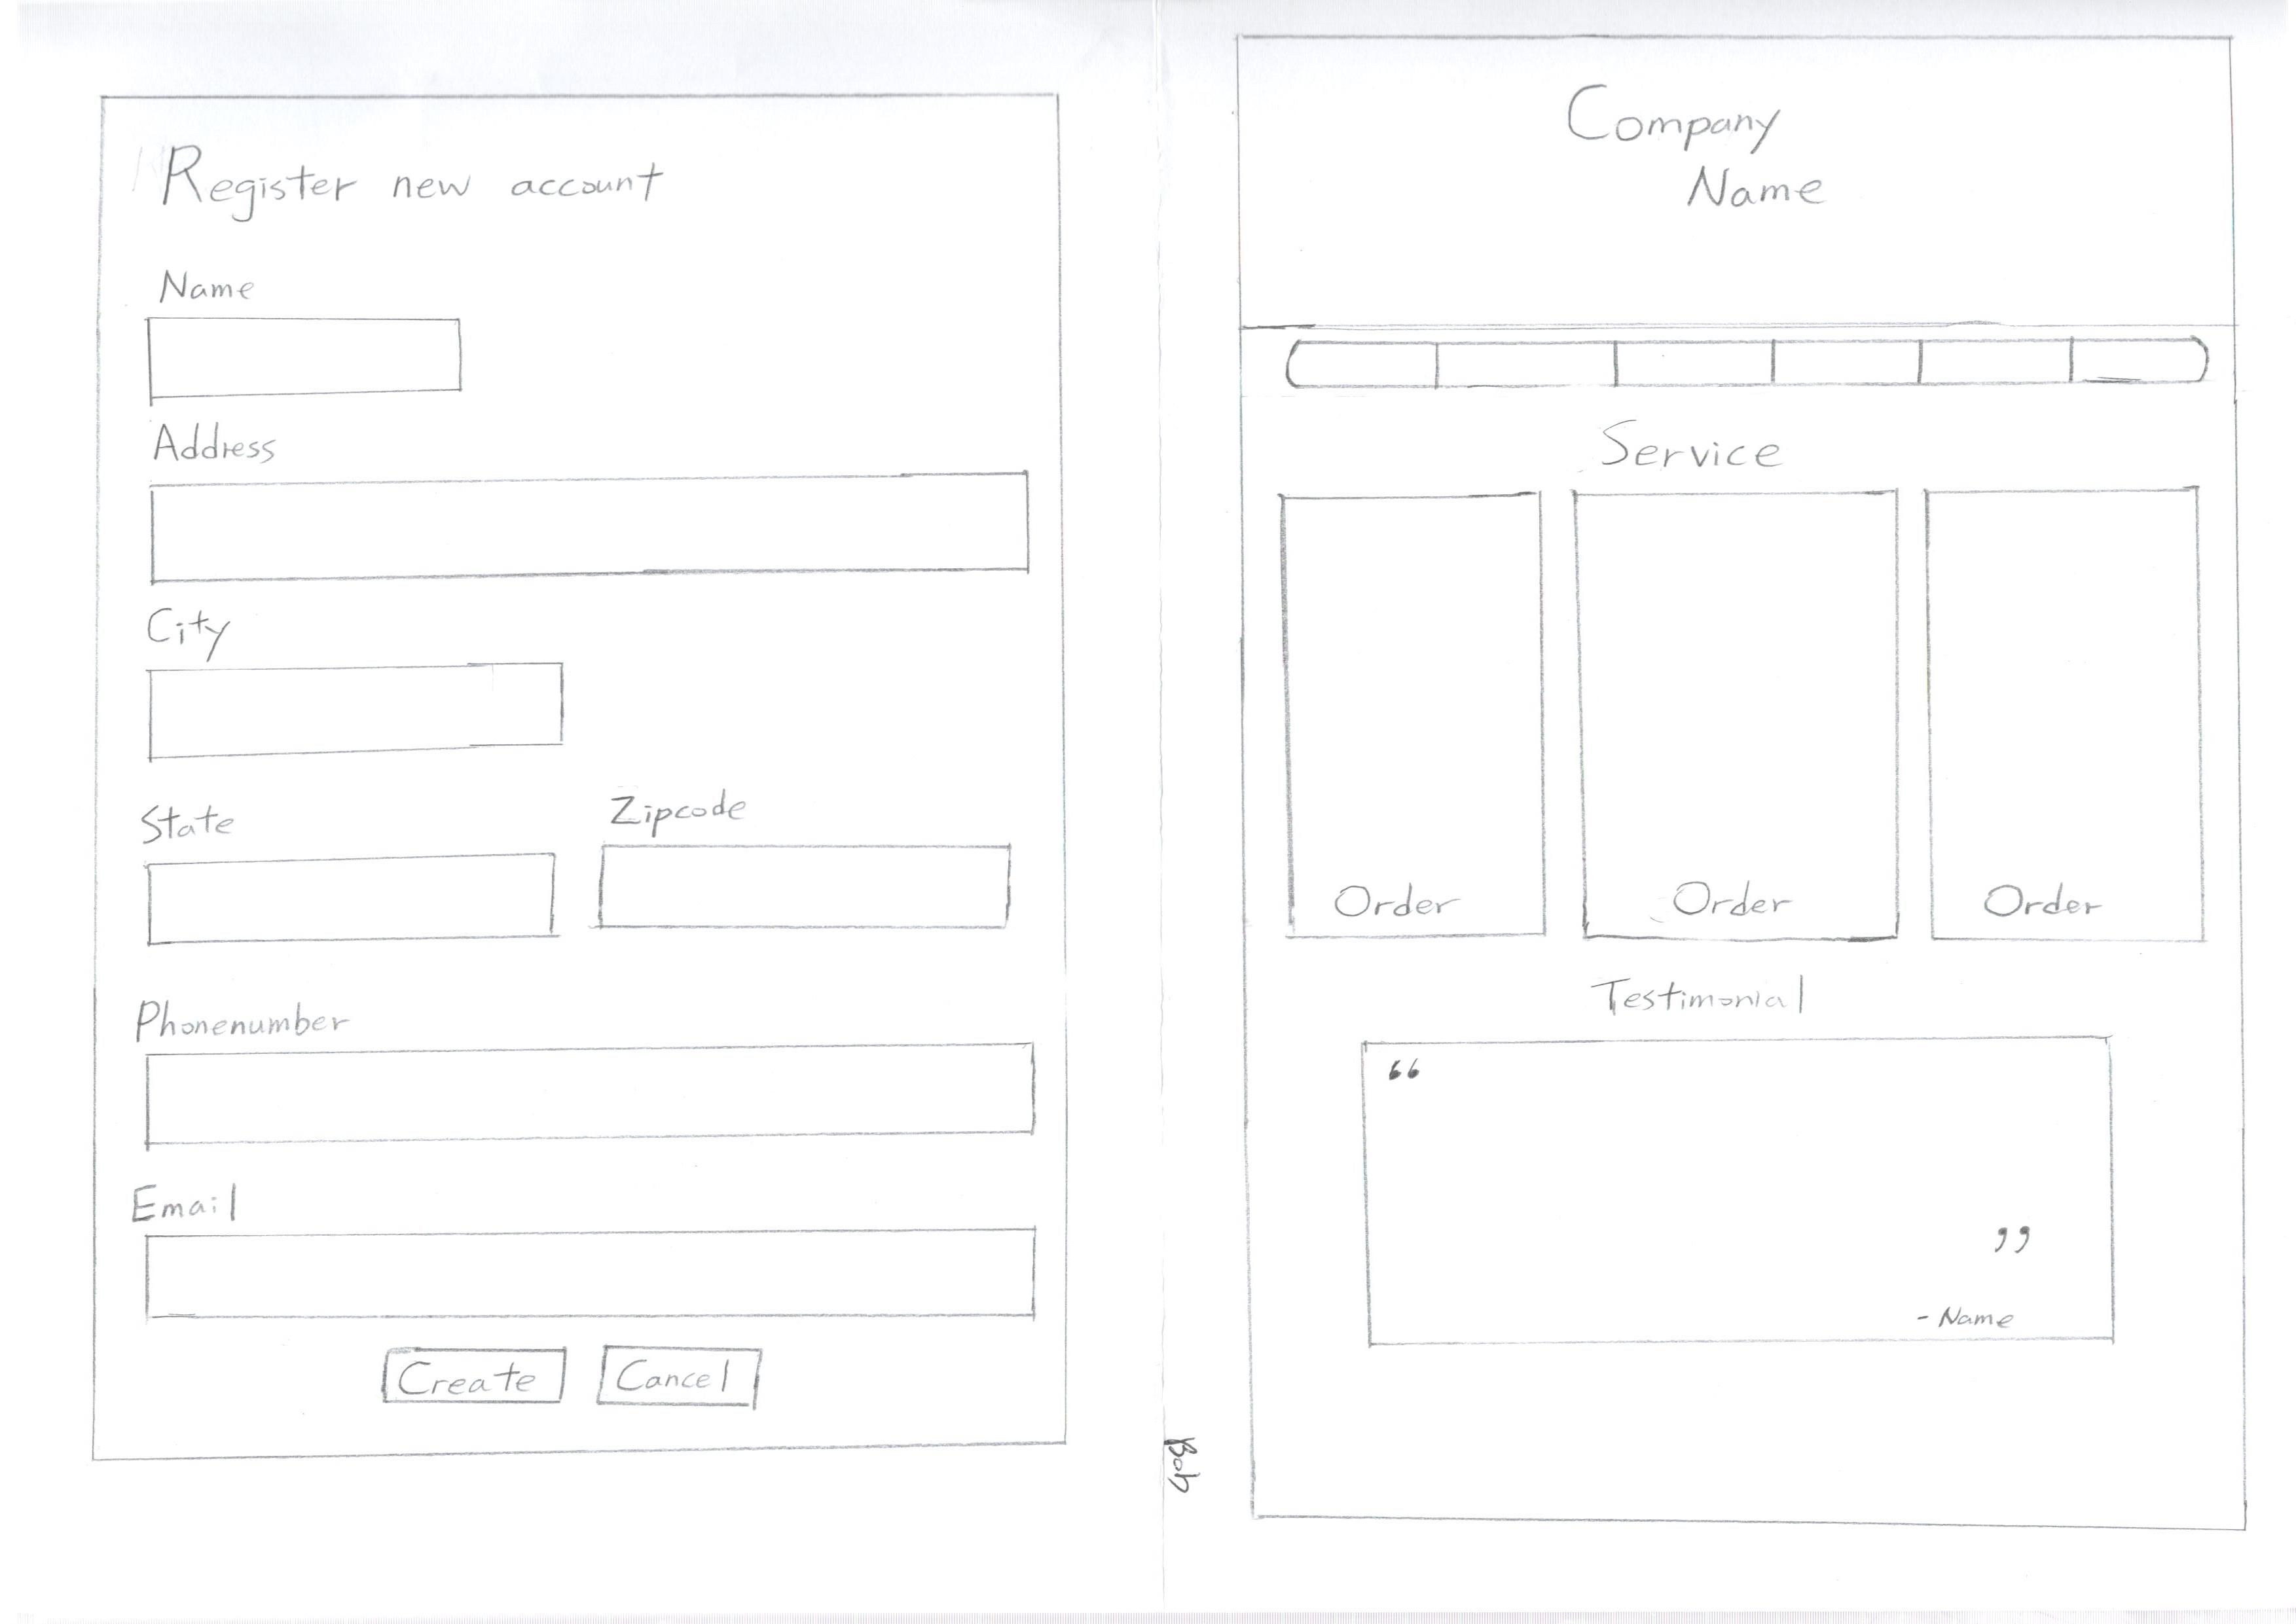 Register new account
Name
Address
City
State
Zipcode
Phonenumber
Email
Create
Cancel
Bob
Company
Name
Service
Order
Order
Order
Testimonial
“
”
- Name